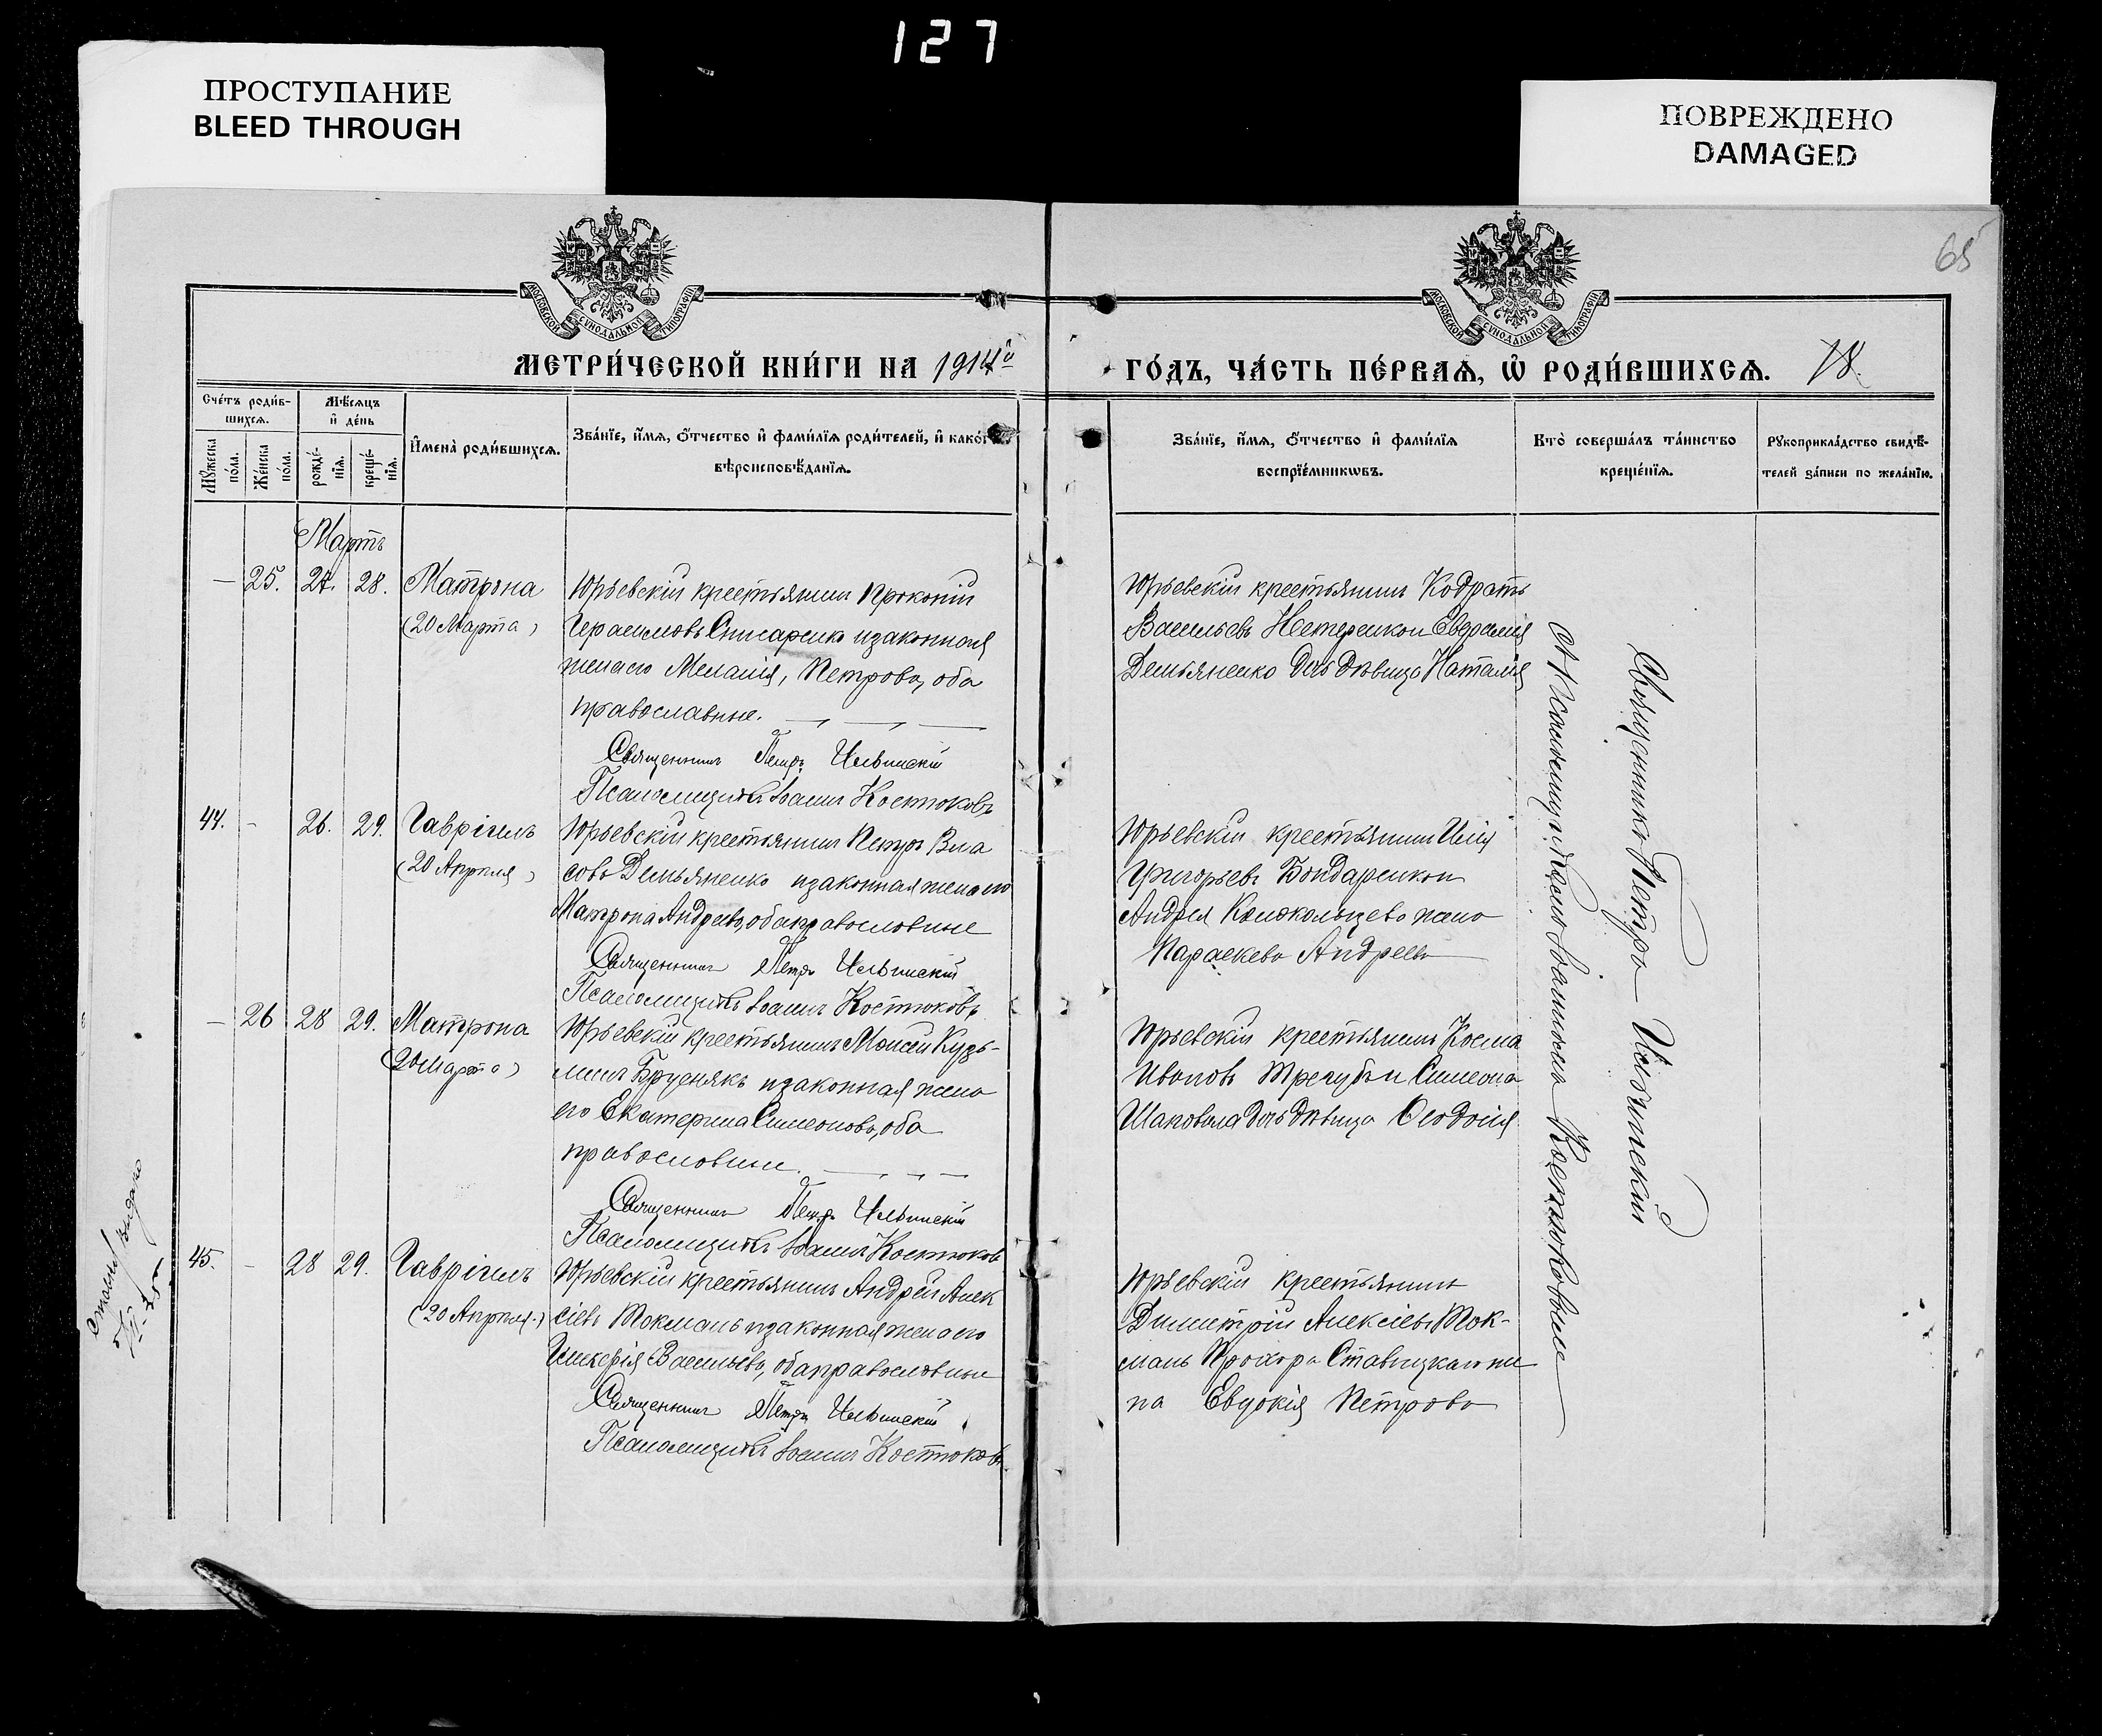 127
ПРОСТУПАНИЕ
BLEED THROUGH
ПОВРЕЖДЕНО
DAMAGED
65
МОСКОВСКОЙ СУНОДАЛЬНОЙ ТИПОГРАФІИ
МОСКОВСКОЙ СУНОДАЛЬНОЙ ТИПОГРАФІИ
МЕТРИ́ЧЕСКОЙ КНИ́ГИ НА 1914й
ГО́ДЪ, ЧА́СТЬ ПЕ́РВАѦ, Ѡ҆ РОДИ́ВШИХСѦ. 78.
Сче́тъ роди́в-
шихсѧ.
Мѣ́сѧцъ
и҆ де́нь
Мꙋ́жеска
по́ла.
Же́нска
по́ла.
рожде́-
нїѧ.
креще́-
нїѧ.
И҆мена̀ роди́вшихсѧ.
Зва́нїе, и҆́мѧ, ѻ҆́тчество и҆ фамѝлїѧ роди́телей, и҆ како́гѡ
вѣроисповѣ́данїѧ.
Зва́нїе, и҆́мѧ, ѻ҆́тчество и҆ фамѝлїѧ
воспрїе́мникѡвъ.
Кто̀ соверша́лъ та́инство
креще́нїѧ.
Рꙋкоприкла́дство свидѣ́-
телей за́писи по жела́нїю.
Мартъ
— 25. 27. 28. Матрона
(20 Марта)
Юрьевскій крестьянинъ Прокопій
Герасимовъ Слисаренко и законная
жена его Меланія, Петрова, оба
православные.
Священникъ Петръ Ильинскій
Псаломщикъ Іоаннъ Костюковъ
Юрьевскій крестьянинъ Кодратъ
Васильевъ Нетеренко и Евфимія
Демьяненко дочь дѣвица Наталія
44. – 26. 29. Гавріилъ
(20 Апрѣля)
Юрьевскій крестьянинъ Петръ Вла
совъ Демьяненко и законная жена его
Матрона Андреева, оба православные
Священникъ Петръ Ильинскій
Псаломщикъ Іоаннъ Костюковъ
Юрьевскій крестьянинъ Илія
Григорьевъ Бондаренко и
Андрея жена
Параскева Андреева
— 26 28 29. Матрона
(20 Марта)
Юрьевскій крестьянинъ Моисей Кузь-
минъ Брусенякъ и законная жена
его Екатерина Симеонова, оба
православные.
Священникъ Петръ Ильинскій
Псаломщикъ Іоаннъ Костюковъ
Юрьевскій крестьянинъ Косма
Ивановъ Трегубъ и Симеона
Шаповала дочь дѣвица Ѳеодосія
45. – 28 29. Гавріилъ
(20 Апрѣля.)
Юрьевскій крестьянинъ Андрей Алек
сіевъ Токмань и законная жена его
Гликерія Васильева, оба православные
Священникъ Петръ Ильинскій
Псаломщикъ Іоаннъ Костюковъ
Юрьевскій крестьянинъ
Димитрій Алексіевъ Ток-
мань Прохора Ставицкаго же
на Евдокія Петрова
Священникъ Петръ Ильинскій
съ псаломщикомъ Іоанномъ Костюковымъ
выдана